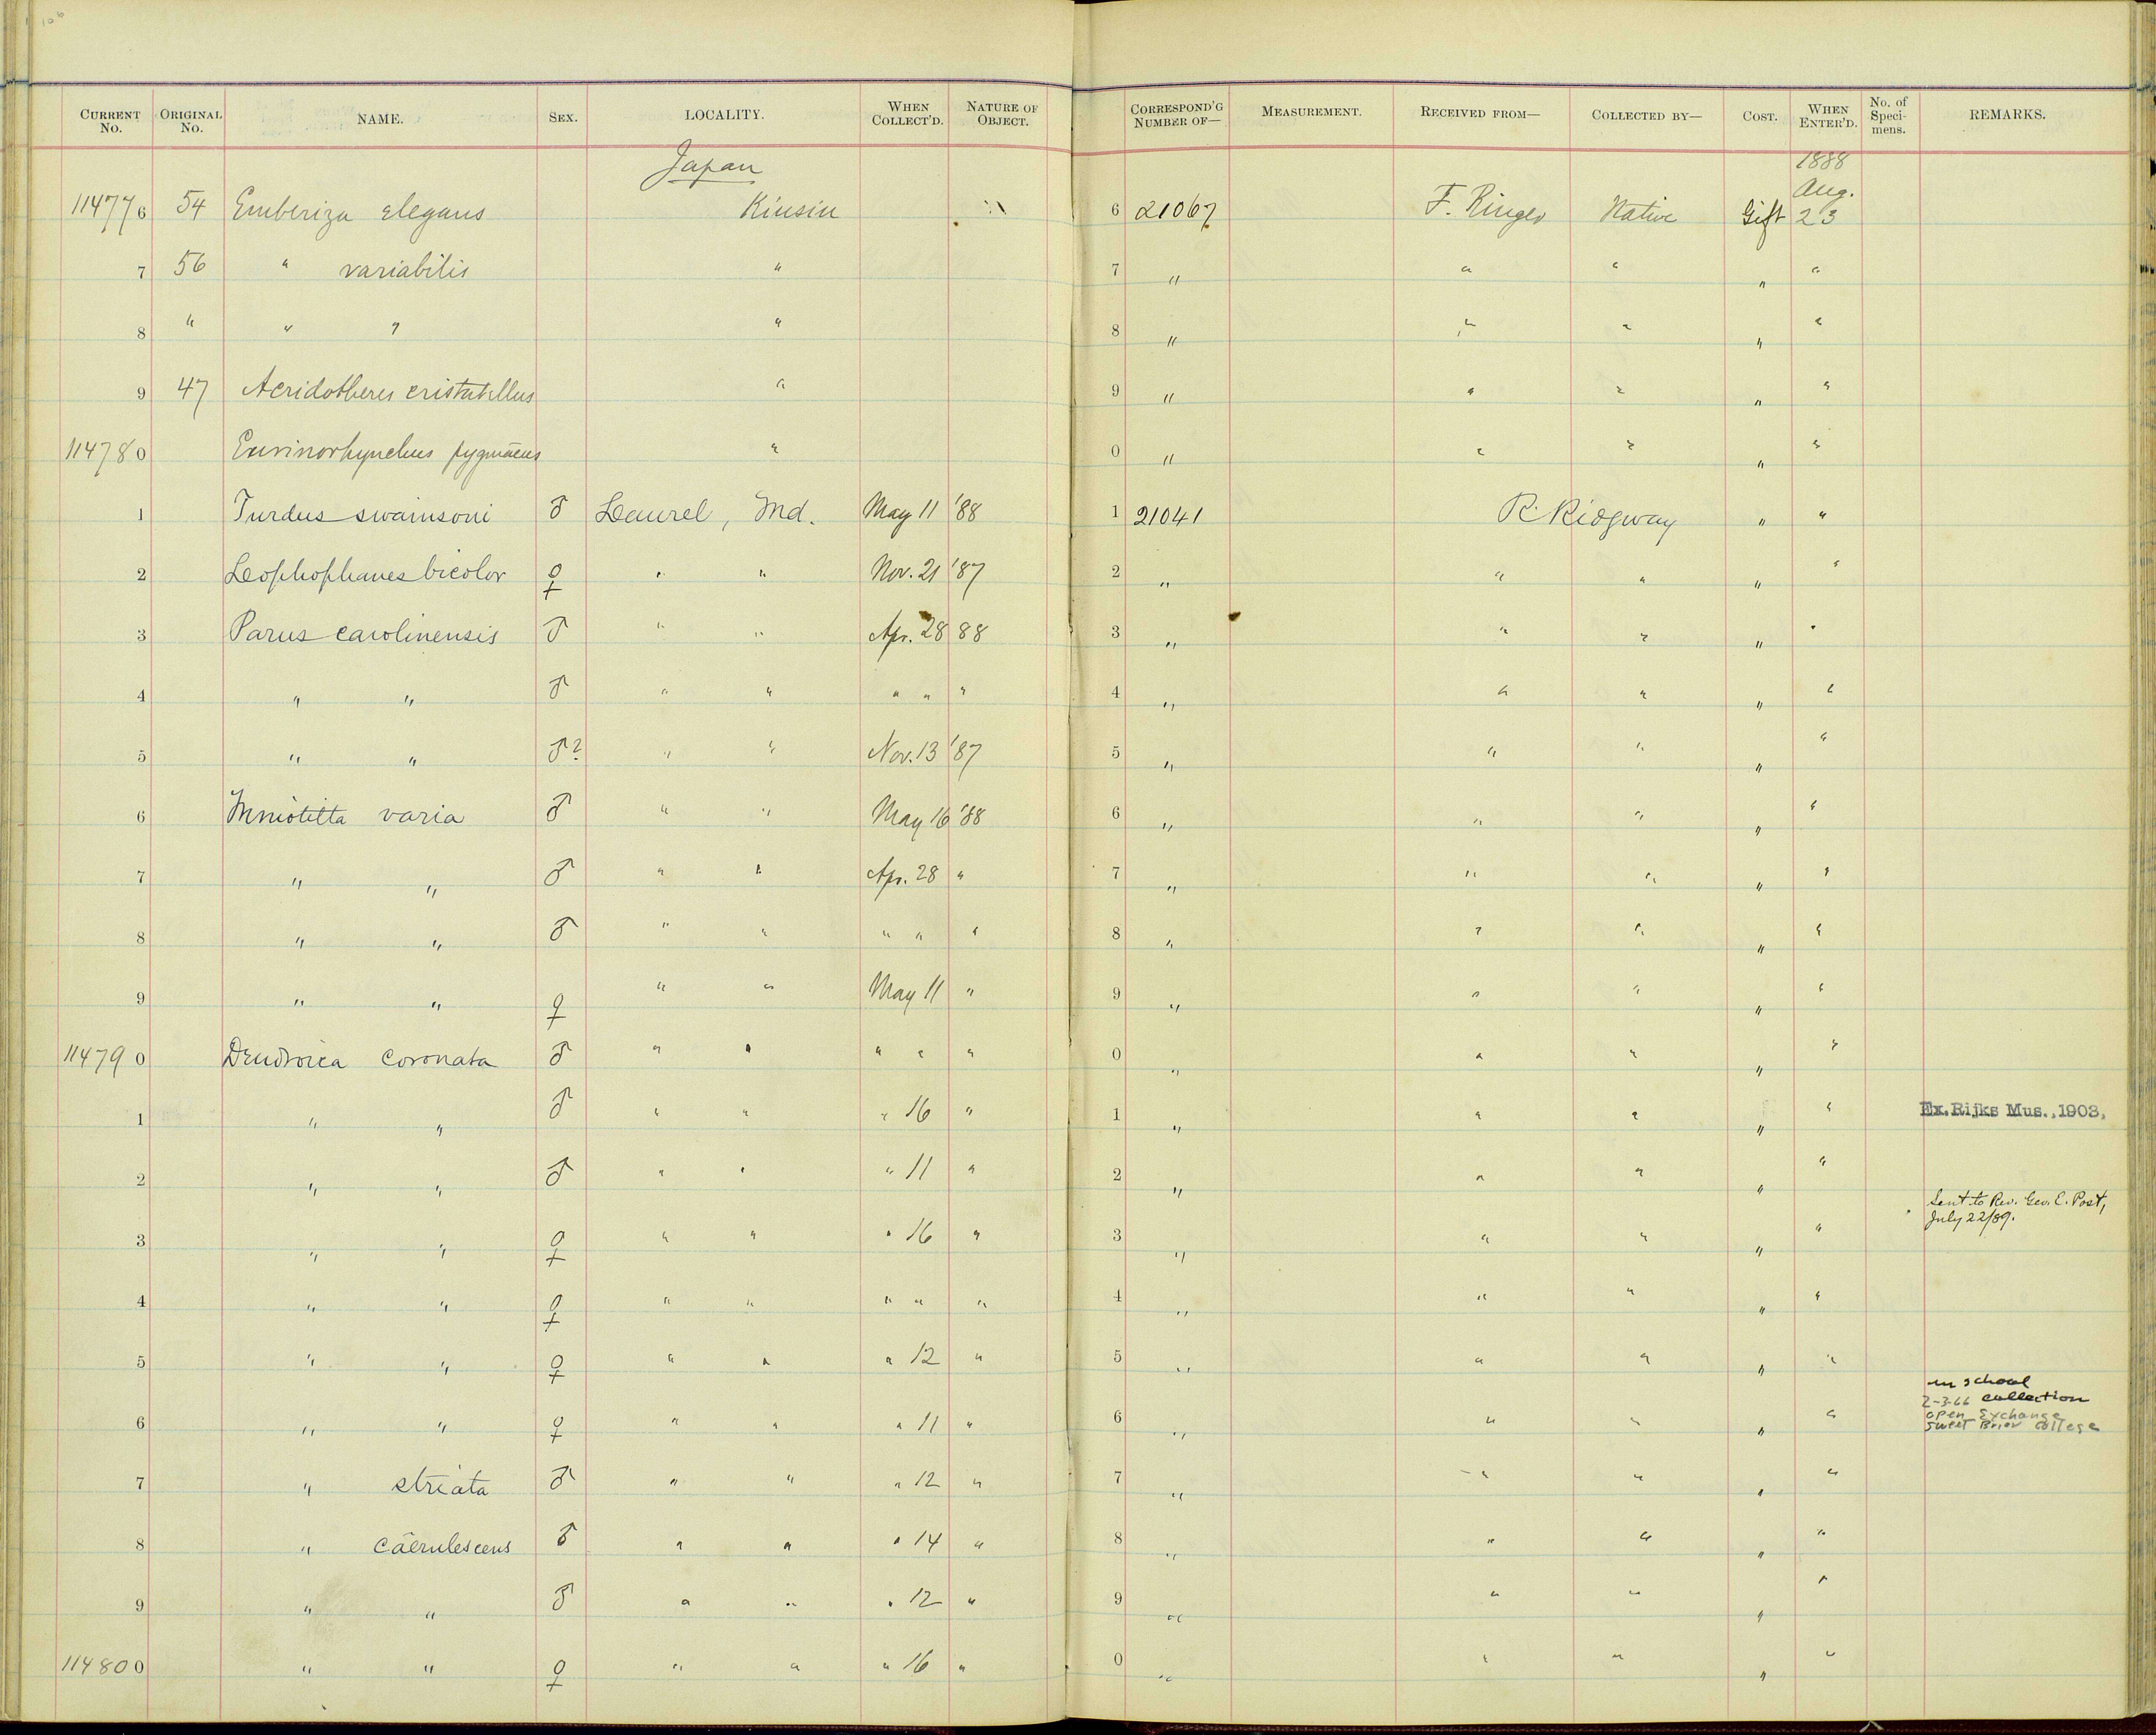 CURRENT No. ORIGINAL No. NAME. SEX. LOCALITY. WHEN COLLECT'D. NATURE OF OBJECT. CORRESPOND'G NUMBER OF— MEASUREMENT. RECEIVED FROM— COLLECTED BY— COST. WHEN ENTER'D. No. of Specimens. REMARKS.
Japan 1888
Aug.
114776 54 Emberiza elegans Kiusiu 6 21067 F. Ringer Native Gift 23
7 56 " variabilis " 7 " " " " "
8 " " " " 8 " " " " "
9 47 Acridotheres cristatellus " 9 " " " " "
114780 Eurinorhynchus pygmaeus " 0 " " " " "
1 Turdus swainsoni ♂ Laurel, Md. May 11 '88 1 21041 R. Ridgway " "
2 Lophophanes bicolor ♀ " " Nov. 21 '87 2 " " " " "
3 Parus carolinensis ♂ " " Apr. 28 88 3 " " " " "
4 " " ♂ " " " " " 4 " " " " "
5 " " ♂? " " Nov. 13 '87 5 " " " " "
6 Mniotilta varia ♂ " " May 16 '88 6 " " " " "
7 " " ♂ " " Apr. 28 " 7 " " " " "
8 " " ♂ " " " " " 8 " " " " "
9 " " ♀ " " May 11 " 9 " " " " "
114790 Dendroica coronata ♂ " " " " " 0 " " " " "
1 " " ♂ " " " 16 " 1 " " " " " Ex. Rijks Mus., 1903.
2 " " ♂ " " " 11 " 2 " " " " "
Sent to Rev. Geo. E. Post,
3 " " ♀ " " " 16 " 3 " " " " " July 22/89.
4 " " ♀ " " " " " 4 " " " " "
5 " " ♀ " " " 12 " 5 " " " " "
in school
2-3-66 collection
6 " " ♀ " " " 11 " 6 " " " " " open Exchange
Sweet Briar College
7 " striata ♂ " " " 12 " 7 " " " " "
8 " caerulescens ♂ " " " 14 " 8 " " " " "
9 " " ♂ " " " 12 " 9 " " " " "
114800 " " ♀ " " " 16 " 0 " " " " "